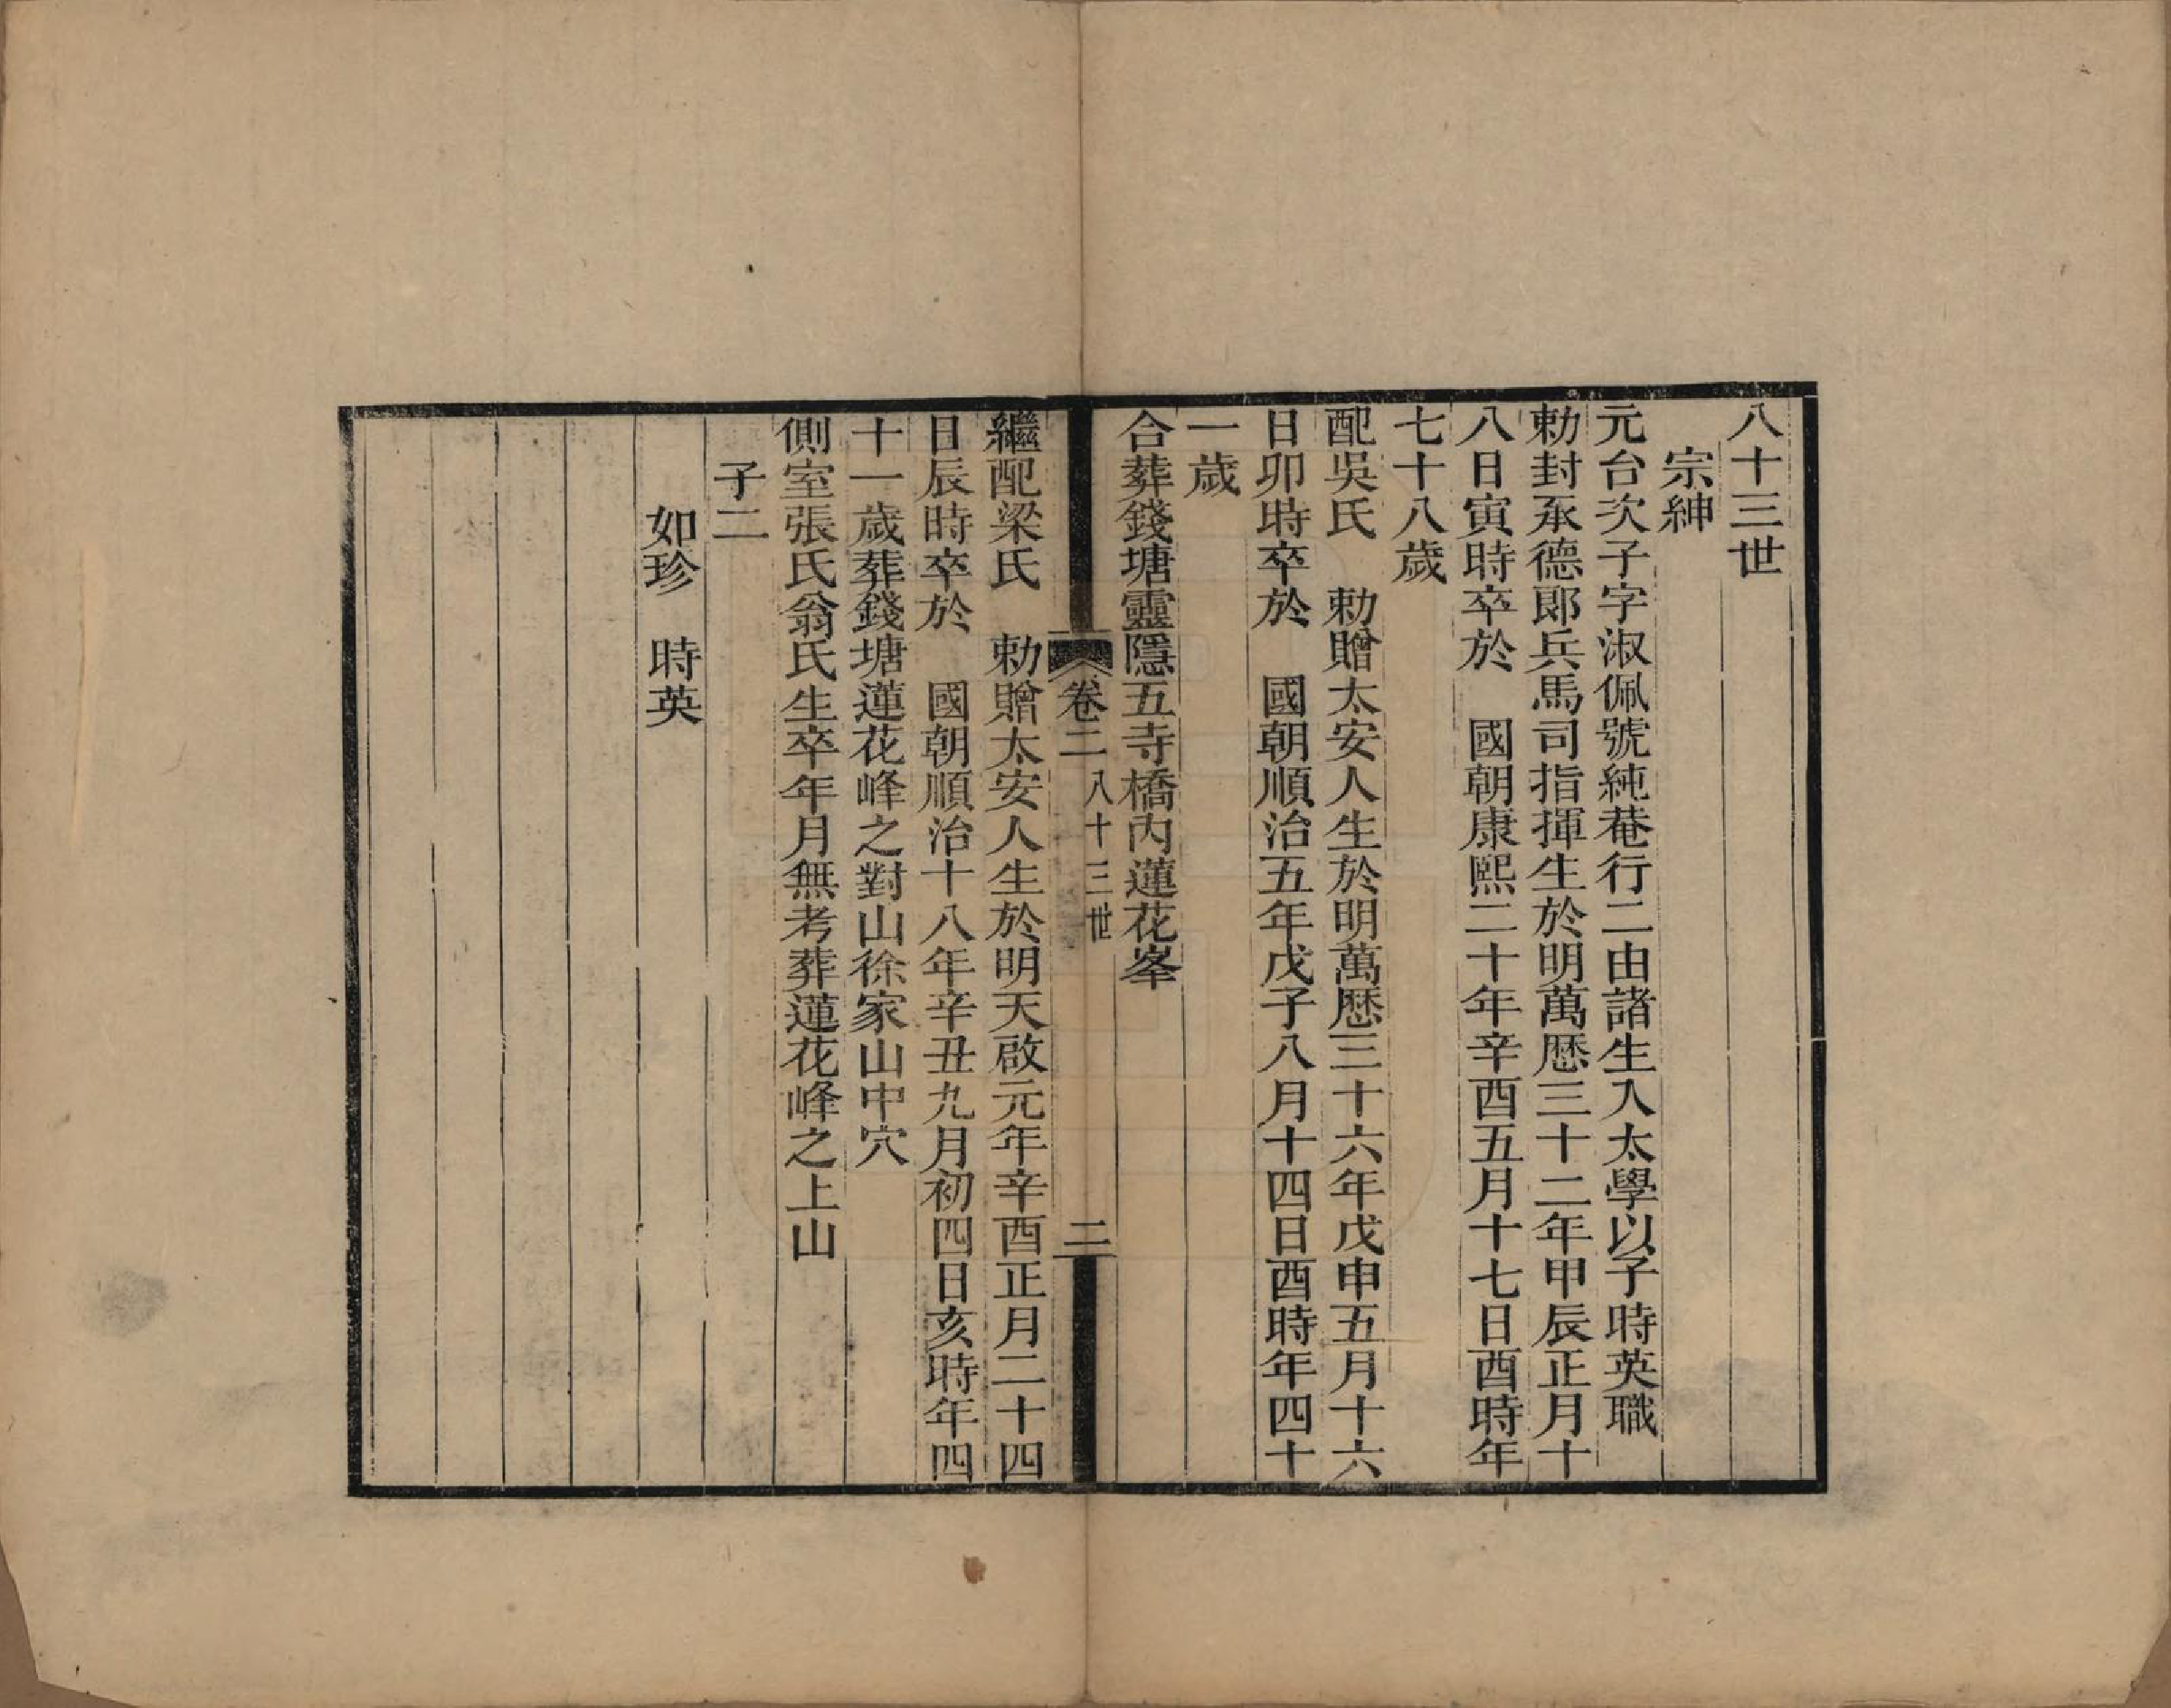 八十三世
宗紳
元台次子字淑佩號純菴行二由諸生入太學以子時英職
勅封承德郎兵馬司指揮生於明萬歷三十二年甲辰正月十
八日寅時卒於　國朝康熙二十年辛酉五月十七日酉時年
七十八歲
配吳氏　勅贈太安人生於明萬歷三十六年戊申五月十六
日卯時卒於　國朝順治五年戊子八月十四日酉時年四十
一歲
合葬錢塘靈隱五寺橋內蓮花峯
卷二　八十三世　二
繼配梁氏　勅贈太安人生於明天啟元年辛酉正月二十四
日辰時卒於　國朝順治十八年辛丑九月初四日亥時年四
十一歲葬錢塘蓮花峰之對山徐家山中穴
側室張氏翁氏生卒年月無考葬蓮花峰之上山
子二
如珍　時英